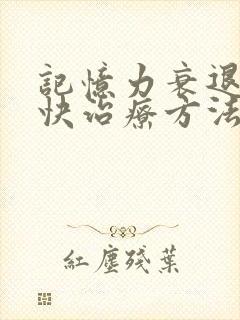 記憶力衰退
快治療方法
紅塵殘葉